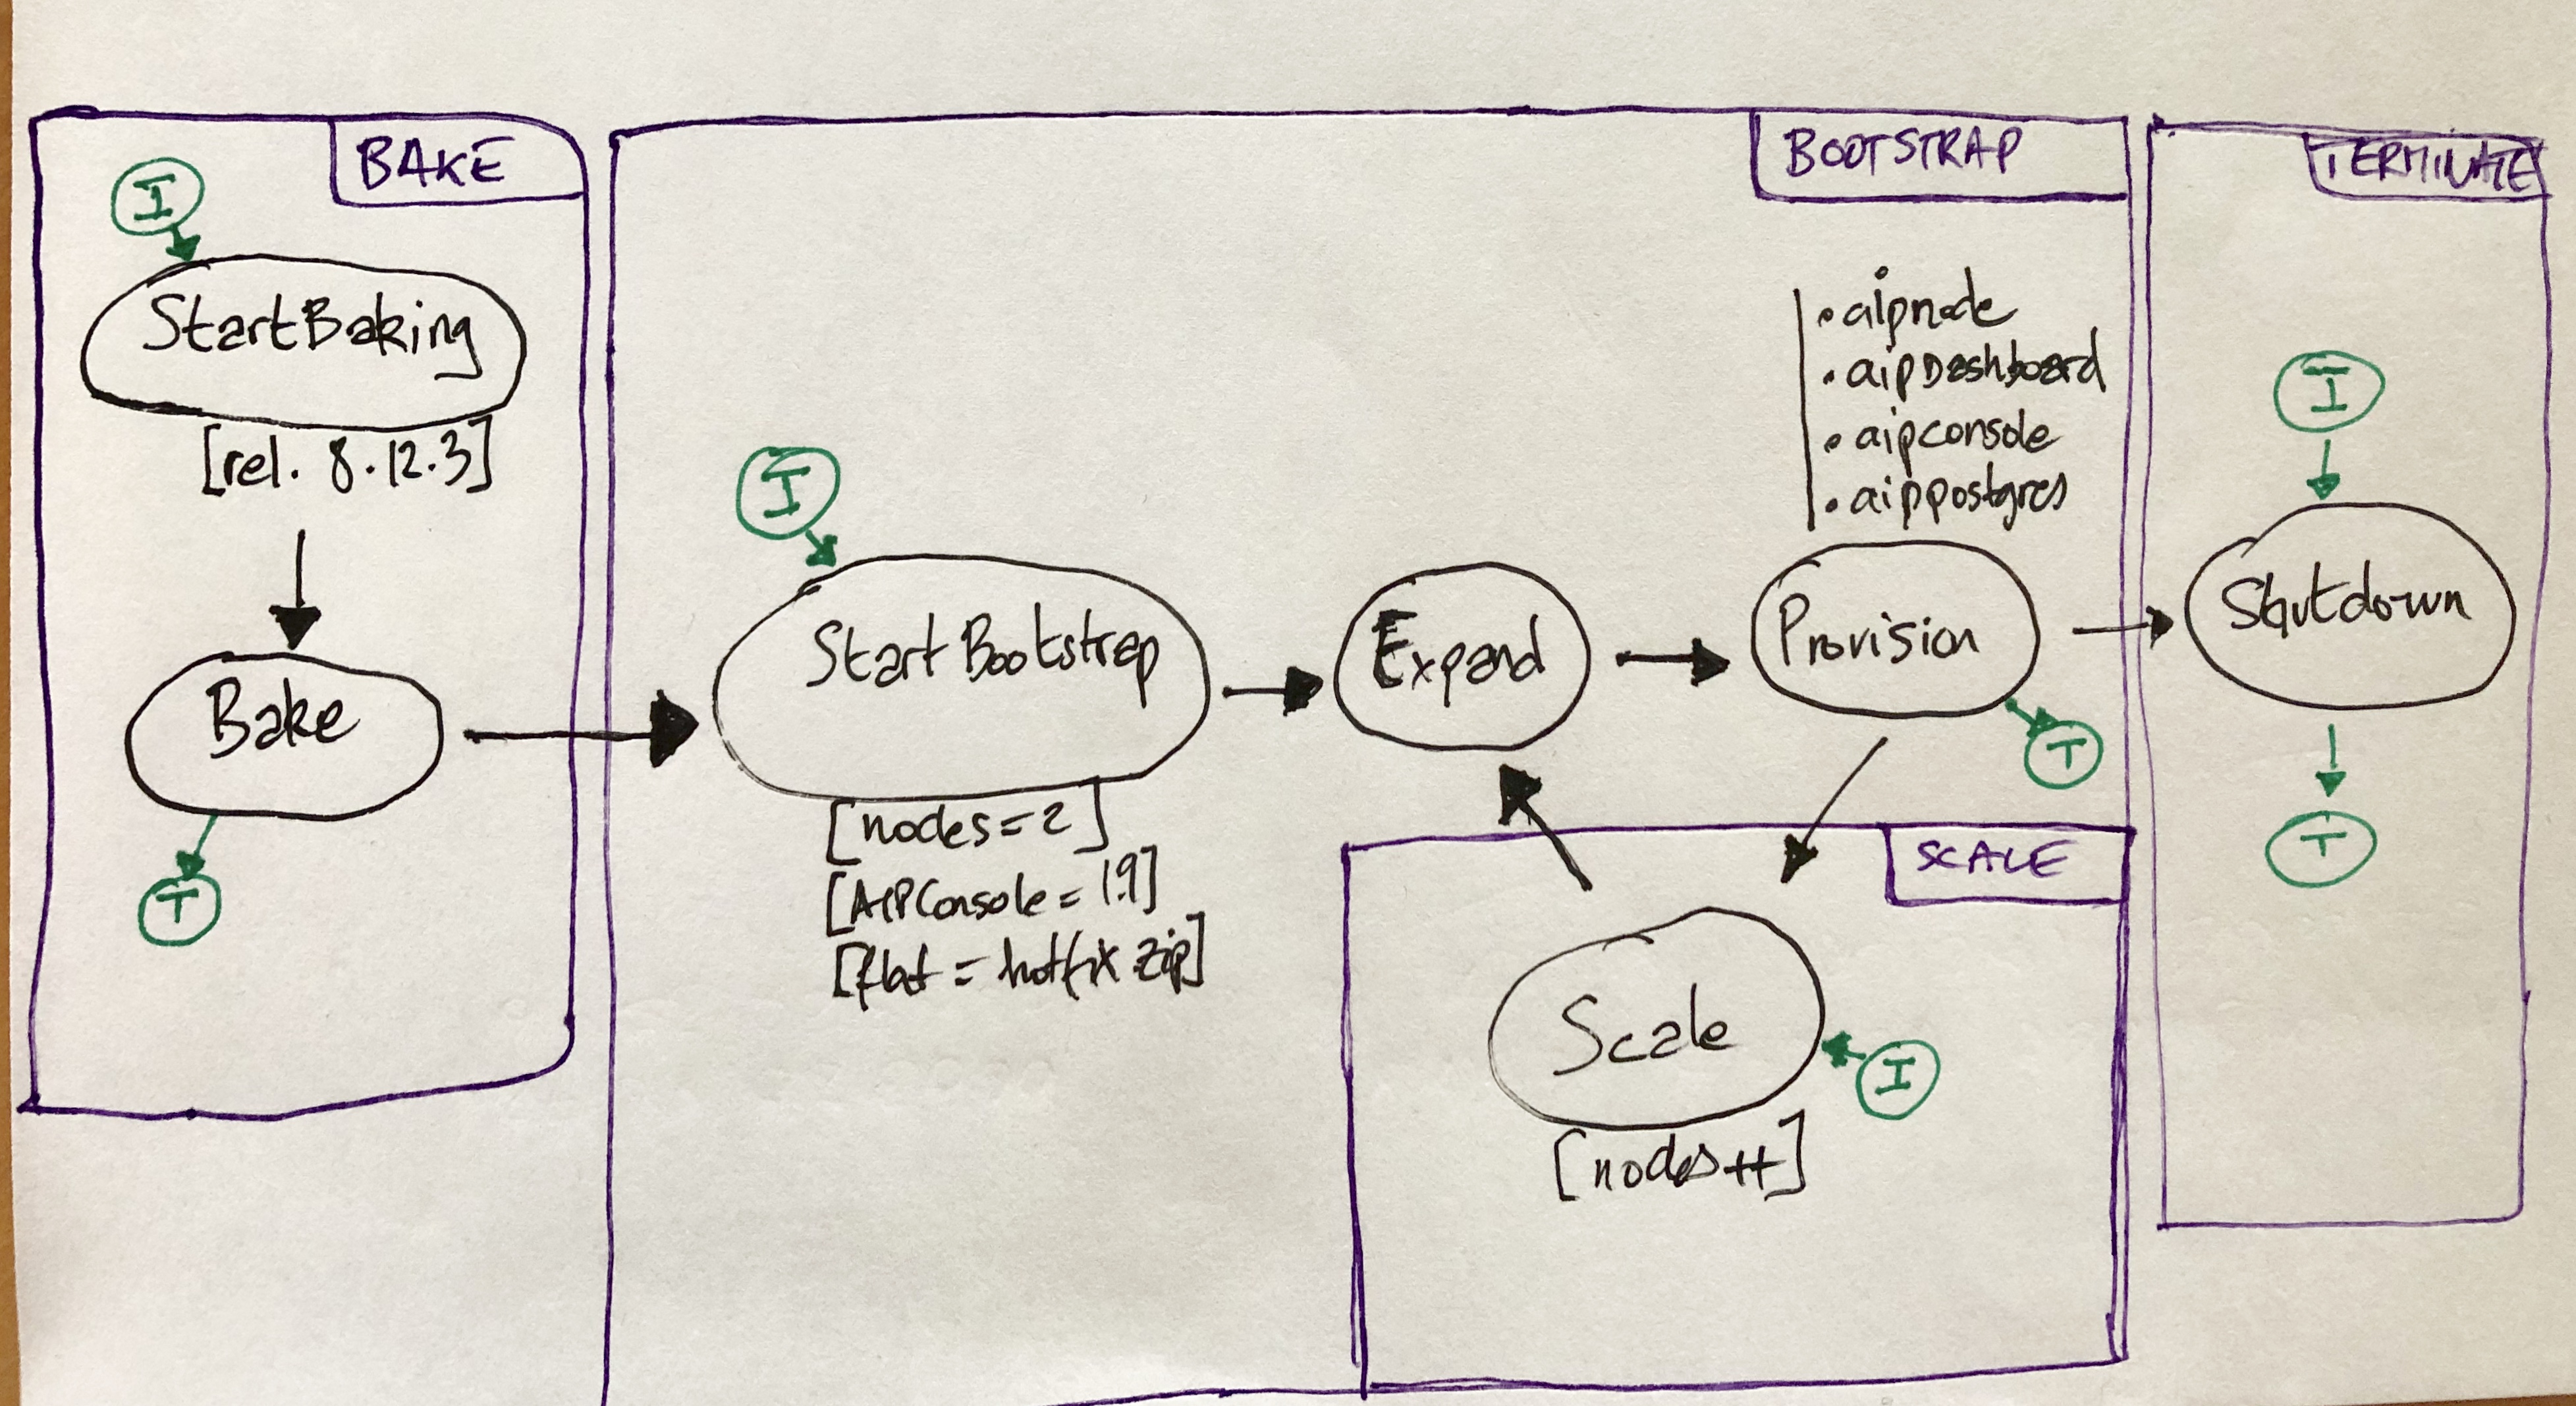 BAKE
I
StartBaking
[rel. 8.12.3]
Bake
T
BOOTSTRAP
I
StartBootstrap
[nodes=2]
[AIPConsole=1.9]
[flat = hotfix zip]
Expand
• aipnode
• aipDashboard
• aipconsole
• aippostgres
Provision
T
SCALE
Scale
I
[nodes++]
TERMINATE
I
Shutdown
T